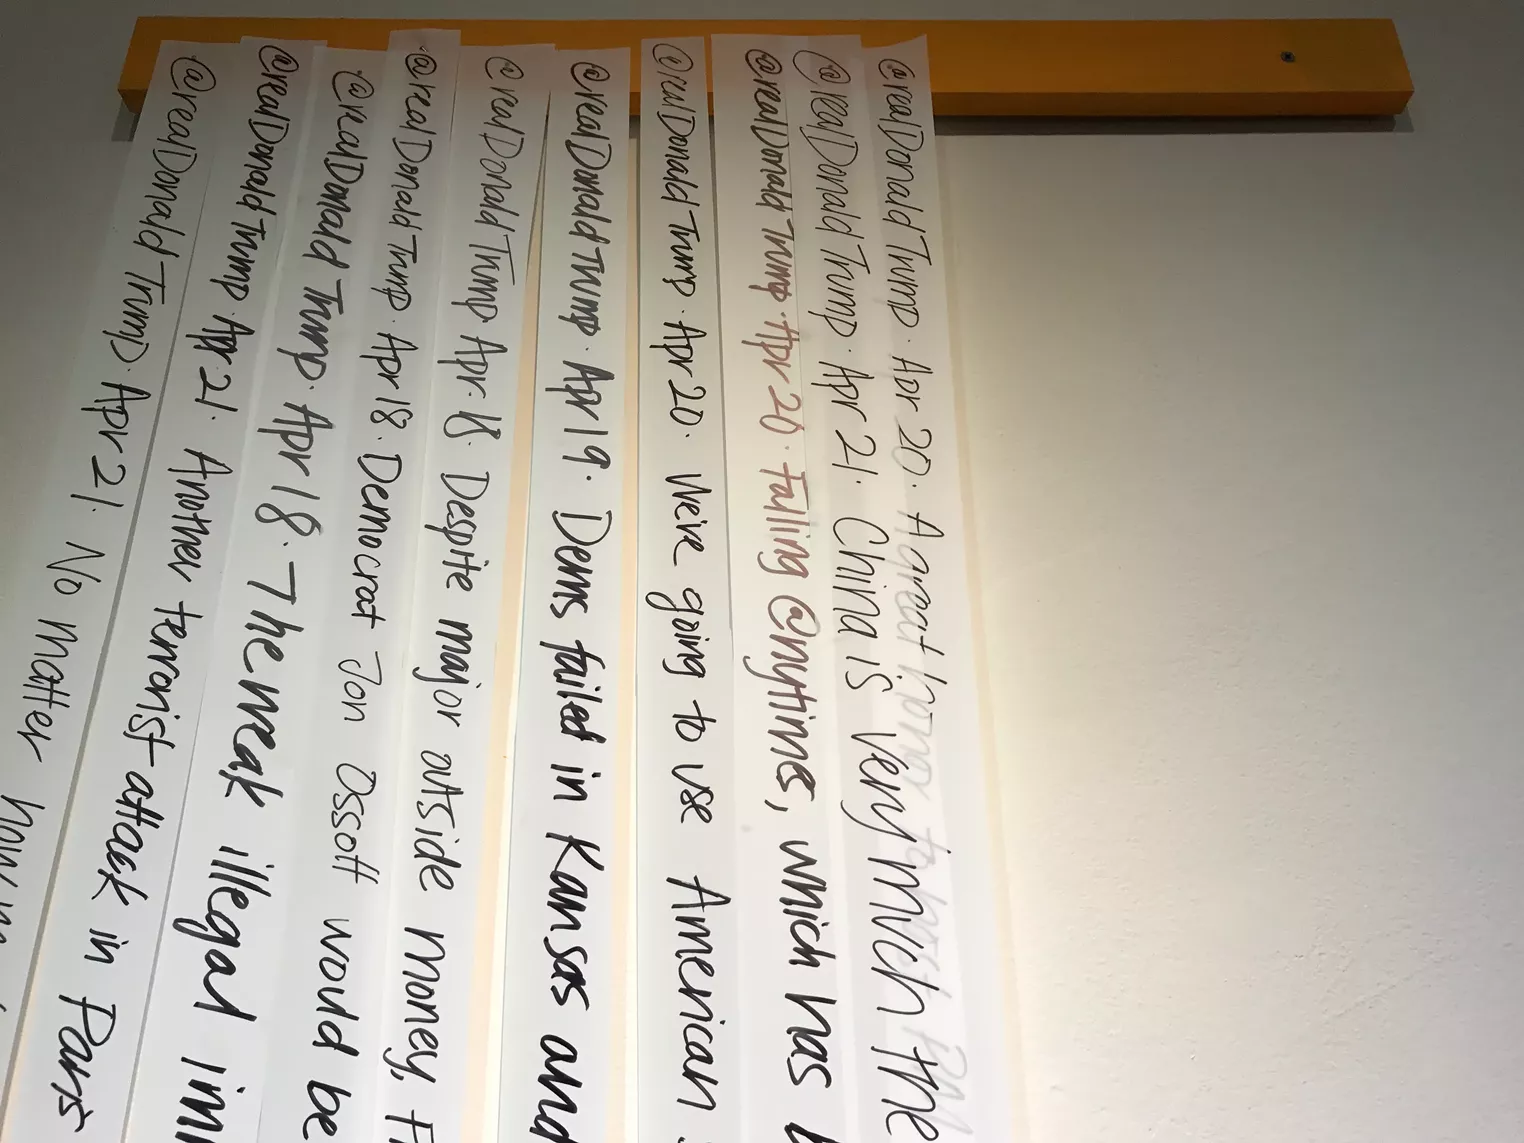 @realDonaldTrump · Apr 20 · A great honor to host
@realDonaldTrump · Apr 21 · China is very much the
@realDonaldTrump · Apr 20 · Failing @nytimes, which has
@realDonaldTrump · Apr 20 · We're going to use American
@realDonaldTrump · Apr 19 · Dems failed in Kansas and
@realDonaldTrump · Apr 18 · Despite major outside money,
@realDonaldTrump · Apr 18 · Democrat Jon Ossoff would be
@realDonaldTrump · Apr 18 · The weak illegal
@realDonaldTrump · Apr 21 · Another terrorist attack in Paris
@realDonaldTrump · Apr 21 · No matter how